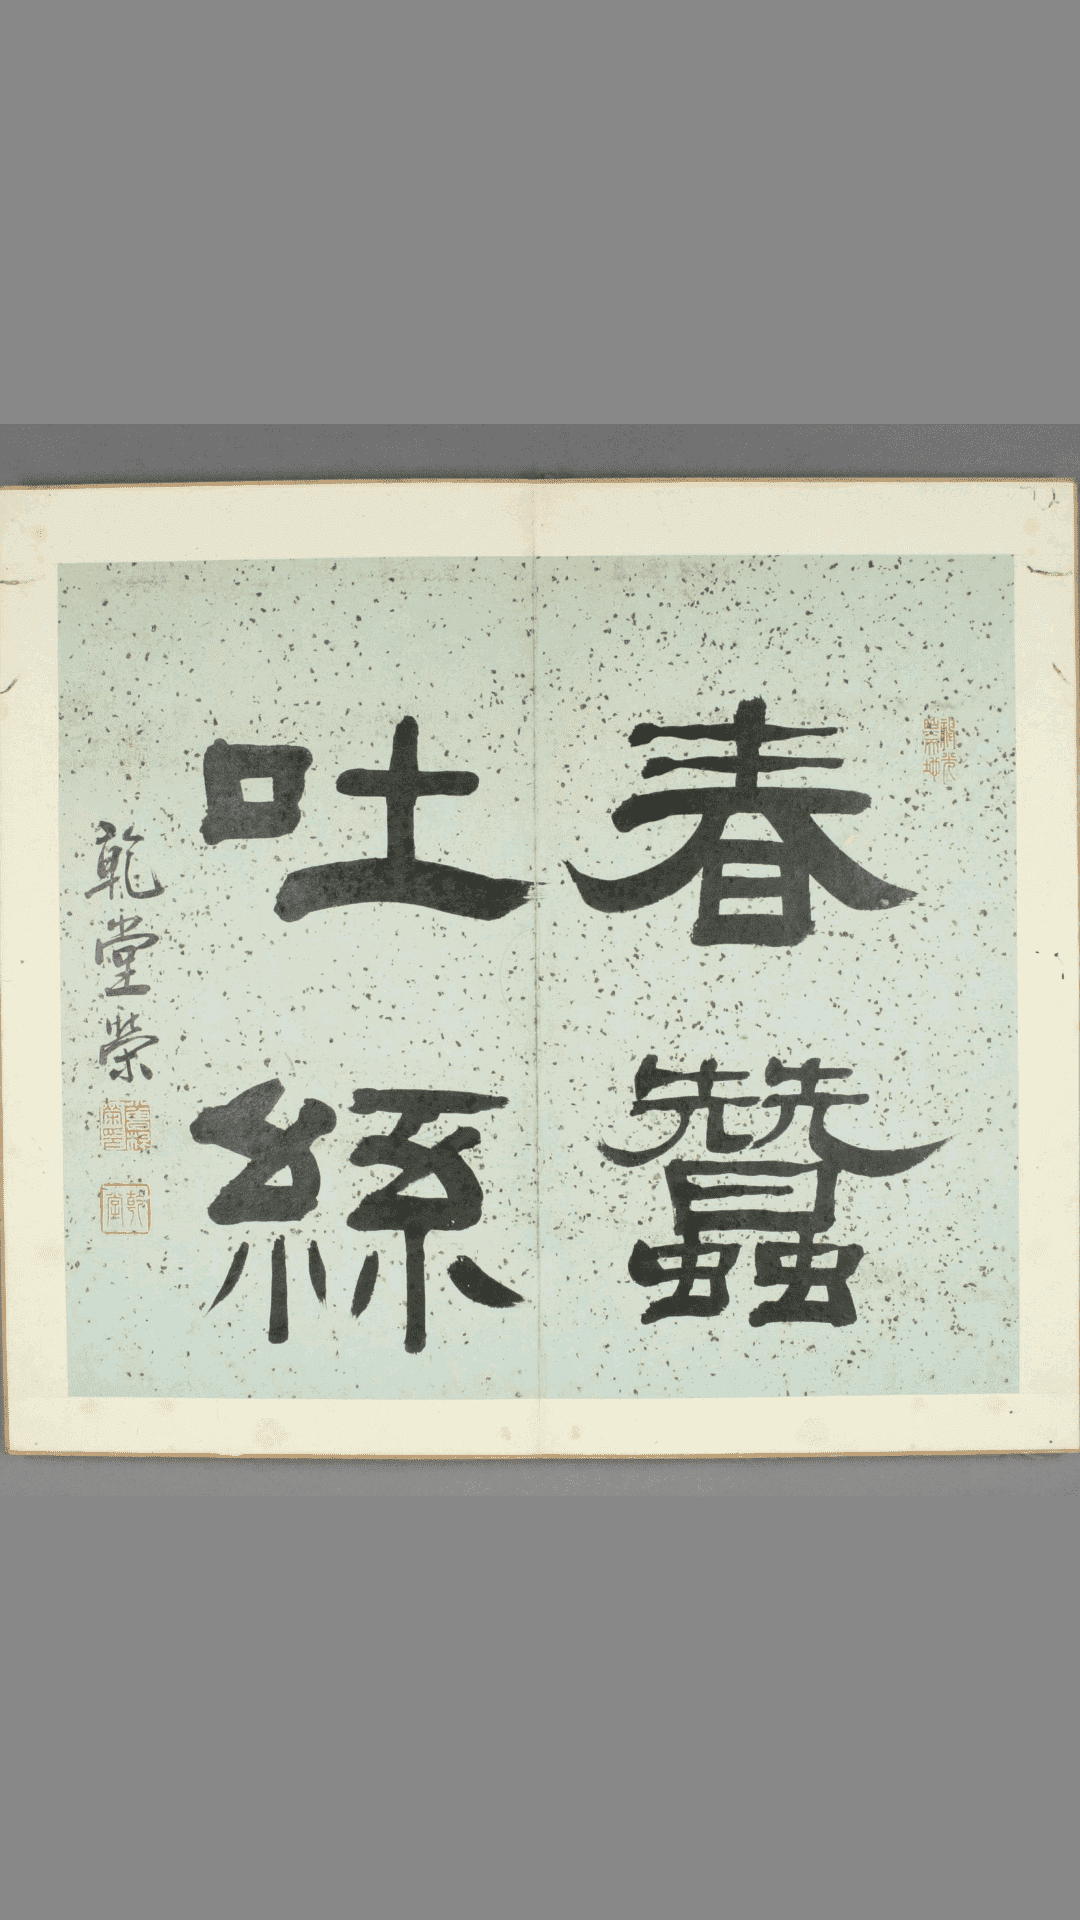 春蠶
吐絲
乾堂榮